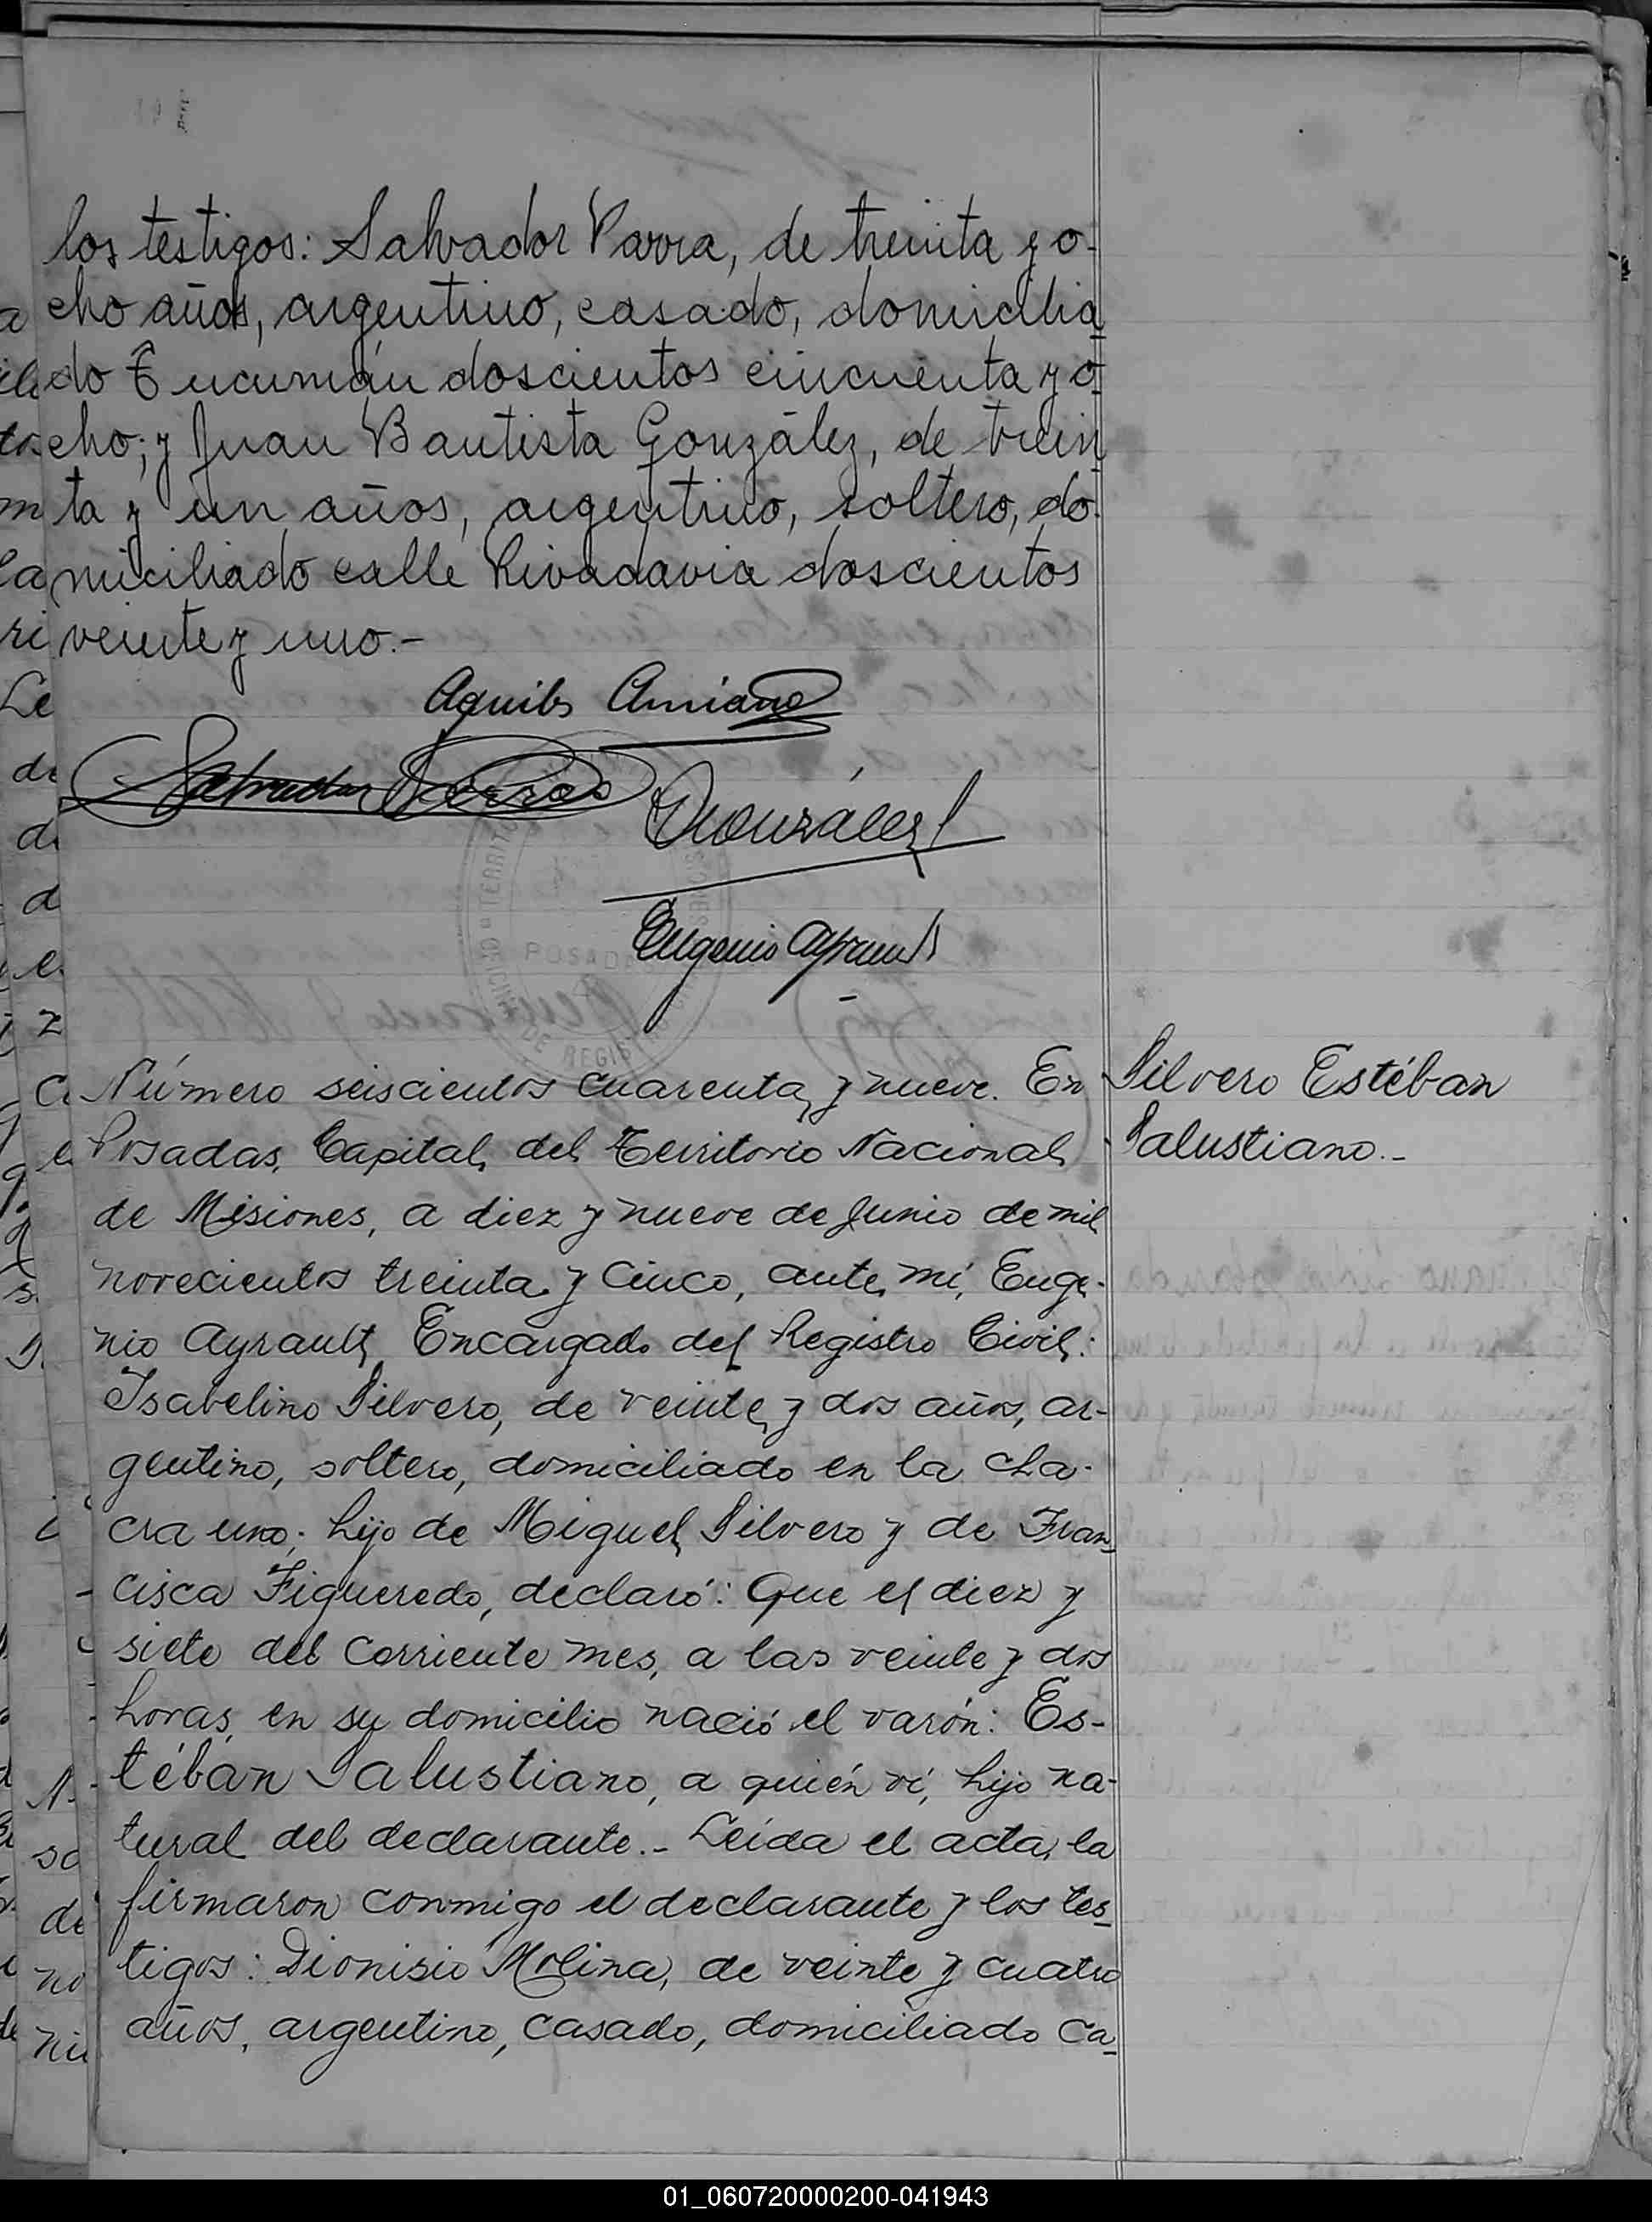 los testigos: Salvador Parra, de treinta y o-
cho años, argentino, casado, domicilia
do Tucumán doscientos cincuenta y o
cho; y Juan Bautista González, de trein
ta y un años, argentino, soltero, do-
miciliado calle Rivadavia doscientos
veinte y uno.-
Aquiles Amiano
Salvador Parra
González
Eugenio Ayrault
POSADAS
Número seiscientos cuarenta y nueve. En
Posadas, Capital del Territorio Nacional
de Misiones, a diez y nueve de Junio de mil
novecientos treinta y cinco, ante mí, Euge-
nio Ayrault Encargado del Registro Civil:
Isabelino Silvero, de veinte y dos años, ar-
gentino, soltero, domiciliado en la cha-
cra uno; hijo de Miguel Silvero y de Fran
cisca Figueredo, declaró: Que el diez y
siete del corriente mes, a las veinte y dos
horas, en su domicilio nació el varón: Es-
tébán Salustiano, a quién ví, hijo na-
tural del declarante.- Leída el acta, la
firmaron conmigo el declarante y los tes
tigos: Dionisio Molina, de veinte y cuatro
años, argentino, casado, domiciliado ca
Silvero Estéban
Salustiano.-
01_060720000200-041943